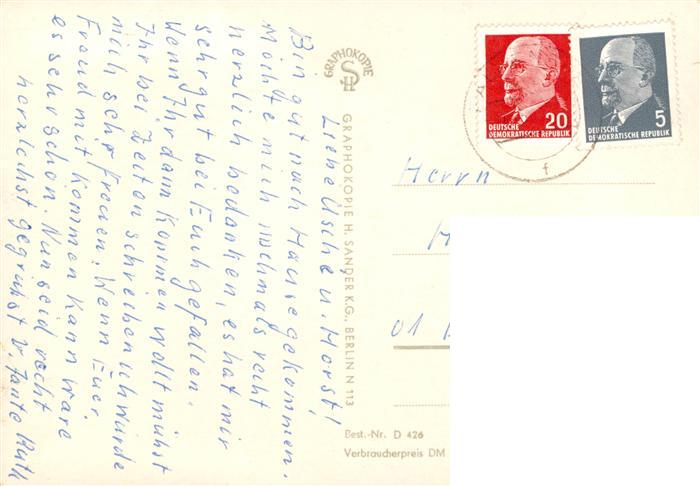 Liebe Uschi u. Horst!
Bin gut nach Hause gekommen.
Möchte mich nochmals recht
herzlich bedanken, es hat mir
sehr gut bei Euch gefallen.
Wenn Ihr dann kommen wollt müßt
Ihr bei Zeiten schreiben ich würde
mich sehr freuen. Wenn Euer
Freund mit kommen kann wäre
es sehr schön. Nun seid recht
herzlichst gegrüßt v. Tante Ruth
GRAPHOKOPIE
SH
GRAPHOKOPIE H. SANDER K.G., BERLIN N 113
20
DEUTSCHE
DEMOKRATISCHE REPUBLIK
5
DEUTSCHE
DEMOKRATISCHE REPUBLIK
f
Herrn
H
01
Best.-Nr. D 426
Verbraucherpreis DM